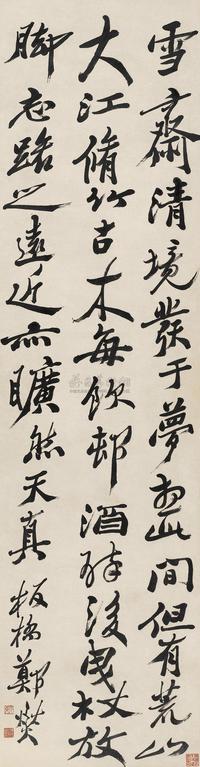 雪齋清境發于夢想此間但有荒山
大江脩竹古木每飲邨酒醉後曳杖放
脚忘路之遠近亦曠然天真 板橋鄭燮